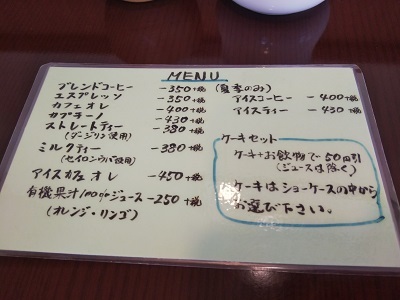 MENU
ブレンドコーヒー -350+税
エスプレッソ -350+税
カフェオレ -400+税
カプチーノ -430+税
ストレートティー -380+税
(ダージリン使用)
ミルクティー -380+税
(セイロンウバ使用)
アイスカフェオレ -450+税
有機果汁100%ジュース-250+税
(オレンジ・リンゴ)
(夏季のみ)
アイスコーヒー -400+税
アイスティー -430+税
ケーキセット
ケーキ+お飲物で50円引
(ジュースは除く)
ケーキはショーケースの中から
お選び下さい。